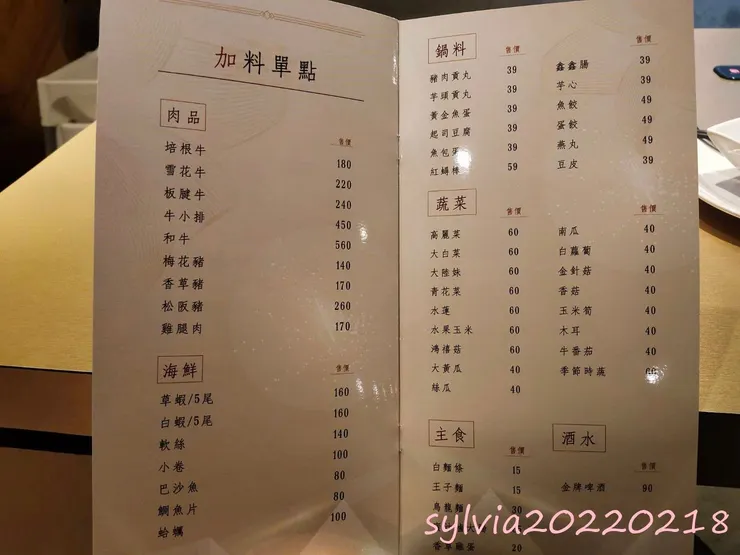 加料單點
肉品
售價
培根牛 180
雪花牛 220
板腱牛 240
牛小排 450
和牛 560
梅花豬 140
香草豬 170
松阪豬 260
雞腿肉 170
海鮮
售價
草蝦/5尾 160
白蝦/5尾 160
軟絲 140
小卷 100
巴沙魚 80
鯛魚片 80
蛤蠣 100
鍋料
售價
豬肉貢丸 39
芋頭貢丸 39
黃金魚蛋 39
起司豆腐 39
魚包蛋 39
紅蟳棒 59
售價
鑫鑫腸 39
芋心 39
魚餃 49
蛋餃 49
燕丸 49
豆皮 39
蔬菜
售價
高麗菜 60
大白菜 60
大陸妹 60
青花菜 60
水蓮 60
水果玉米 60
鴻禧菇 60
大黃瓜 40
絲瓜 40
售價
南瓜 40
白蘿蔔 40
金針菇 40
香菇 40
玉米筍 40
木耳 40
牛番茄 40
季節時蔬 60
主食
售價
白麵條 15
王子麵 15
烏龍麵 30
香草雞蛋 20
酒水
售價
金牌啤酒 90
sylvia20220218